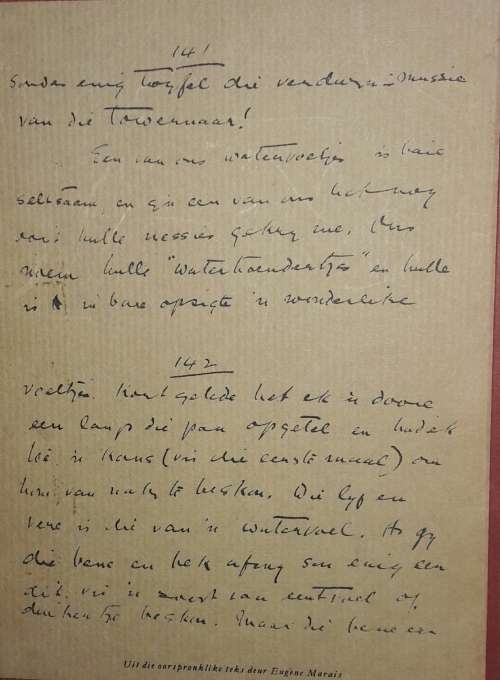 141
Sonder enig twyfel die verdwyn-mussie
van die towernaar!
Een van ons watervoeltjes is baie
seltsaam, en g'n een van ons het nog
ooit hulle nessies gekry nie. Ons
noem hulle "waterhoendertjes" en hulle
is in baie opsigte 'n wonderlike
142
voeltjes. Kort gelede het ek 'n dooie
een langs die pan opgetel en had ek
toe 'n kans (vir die eerste maal) om
hom van naby te besken. Die lyf en
vere is die van 'n watervoel. As gy
die bene en bek afneg sou enig een
dit vir 'n soort van eentvoel of
duikertje besken. Maar die bene en
Uit die oorspronklike teks deur Eugène Marais